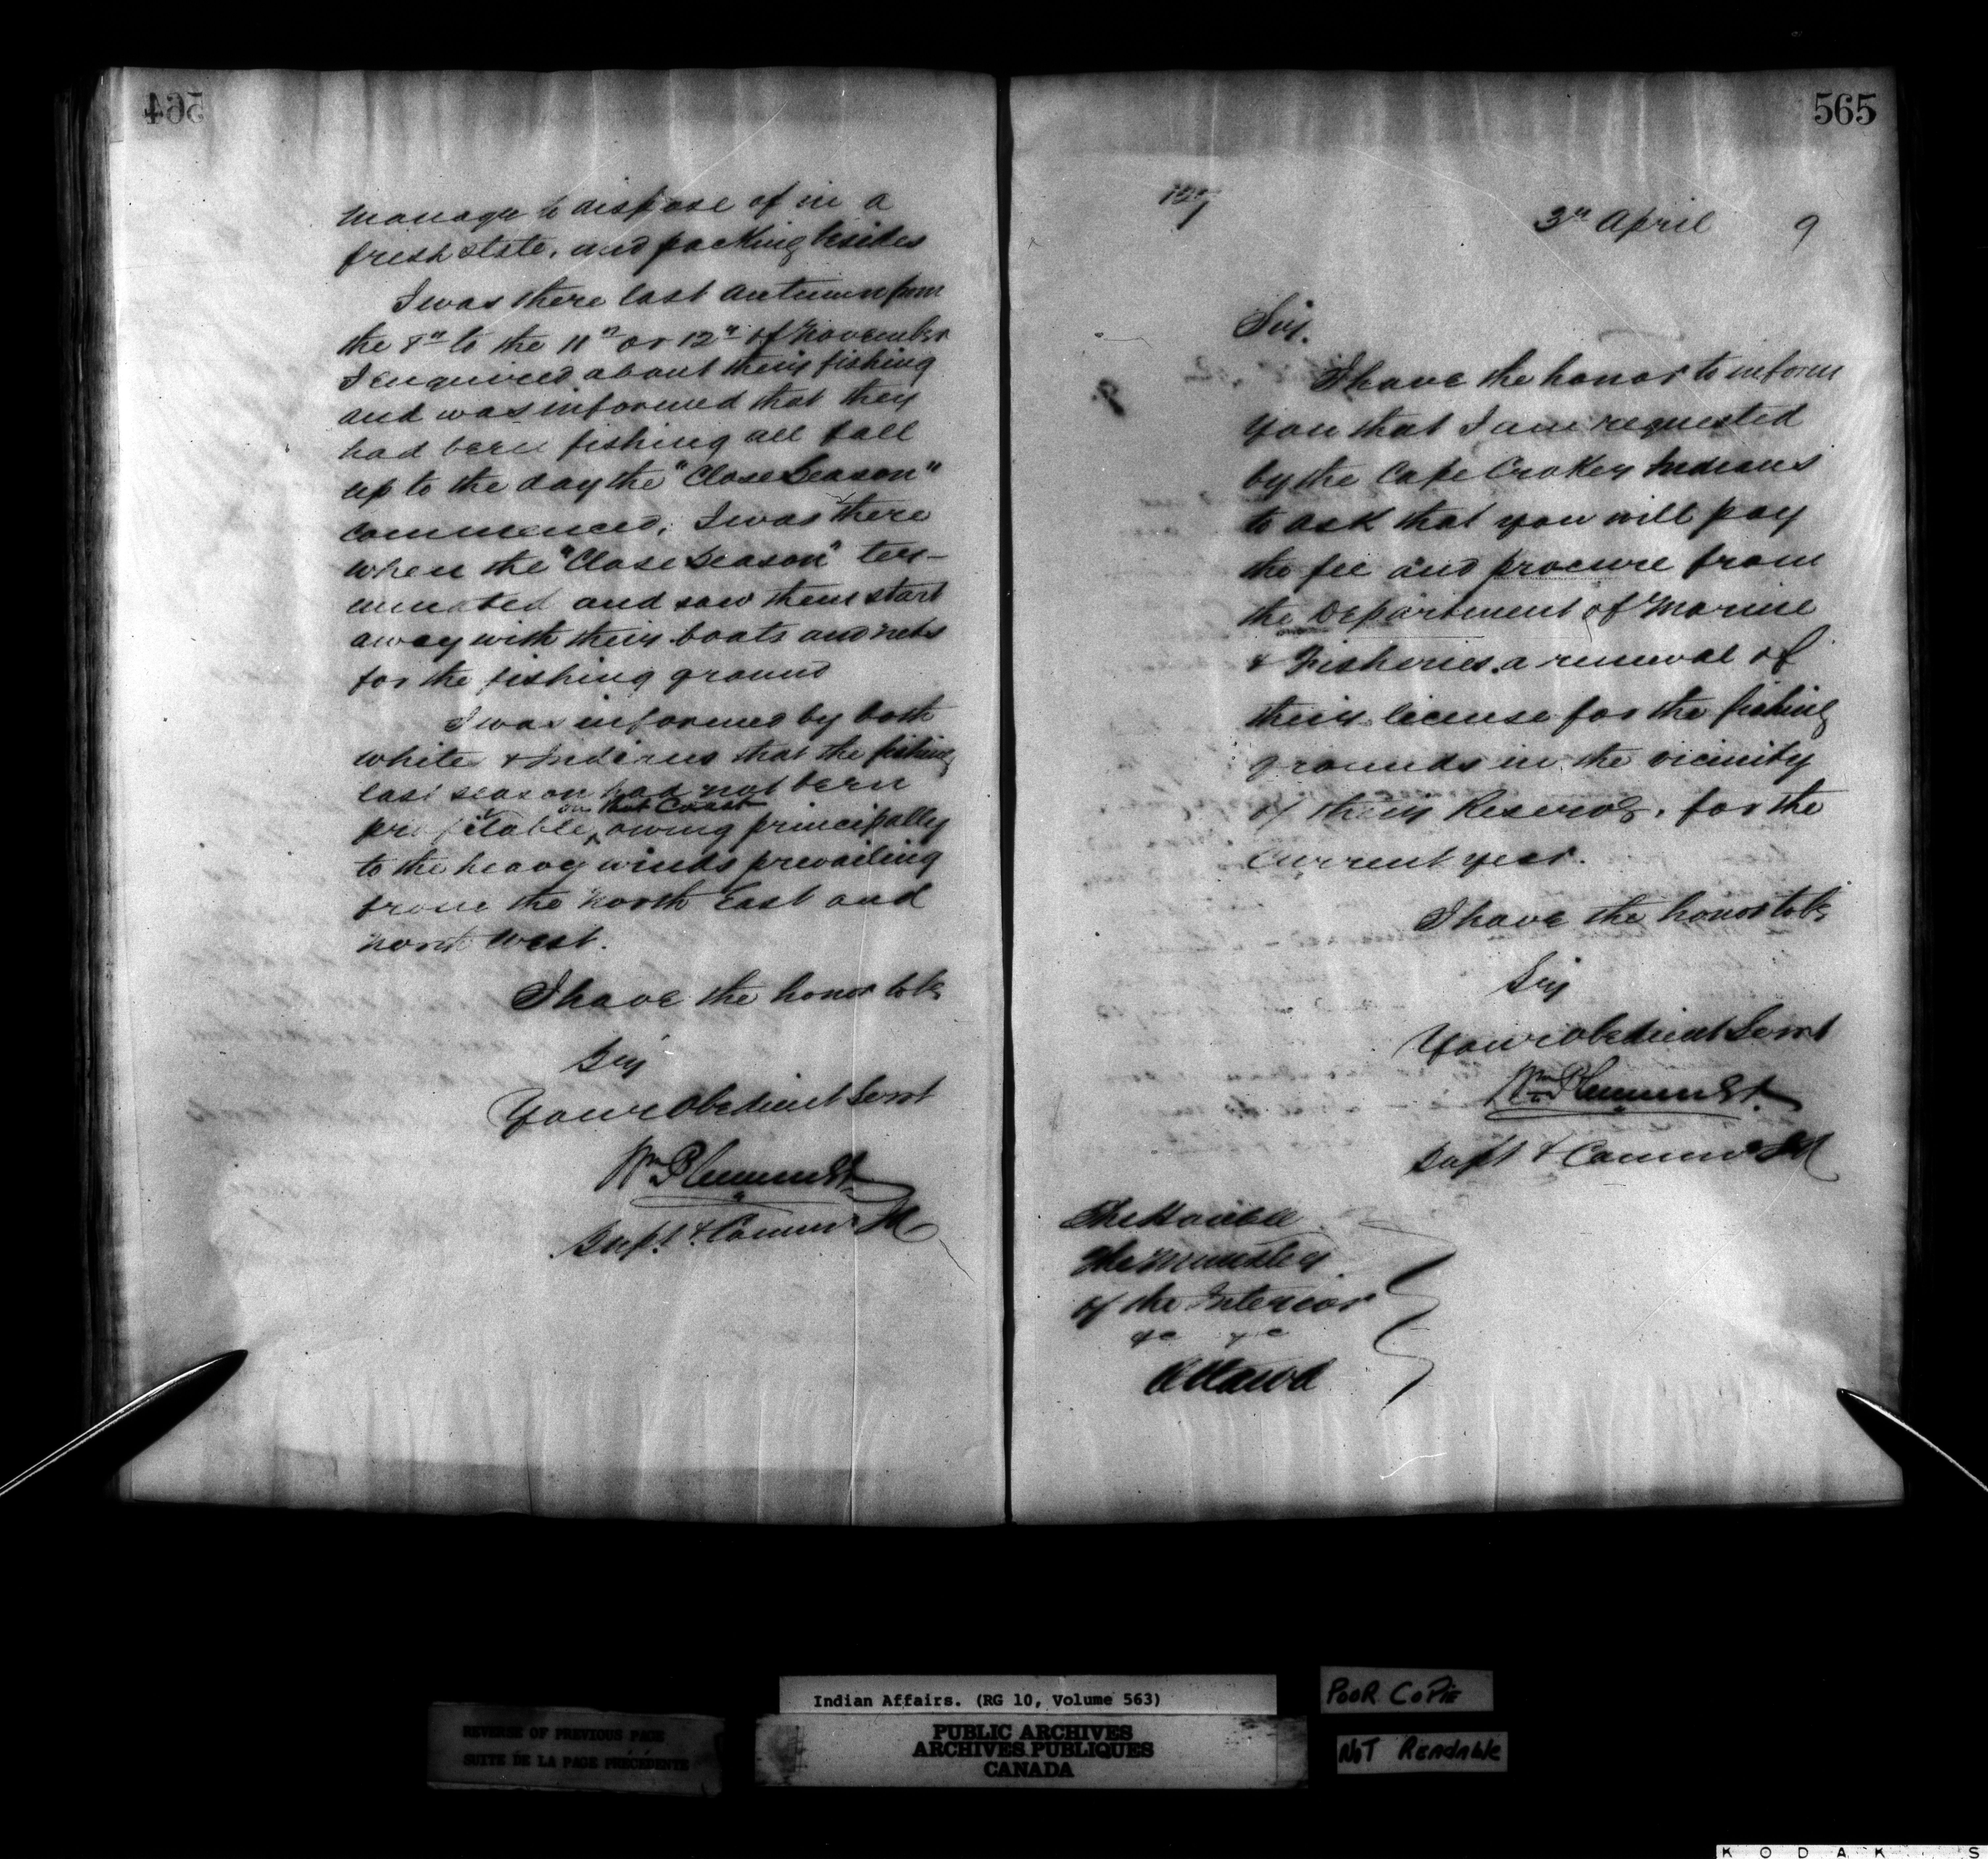 564
manage to dispose of in a
fresh state, and packing besides
I was there last Autumn from
the 8th to the 11th or 12th of November
I enquired about their fishing
and was informed that they
had been fishing all fall
up to the day the "Close Season"
commenced, I was there
when the "Close Season" ter-
minated and saw them start
away with their boats and nets
for the fishing ground
I was informed by both
white & Indians that the fishing
last season had not been
on that Coast
profitable, owing principally
to the heavy winds prevailing
from the North East and
North West.
I have the honor to be
Sir
Your Obedient Servt
Wm Plummer
Supt. & Commr
565
3rd April 9
Sir.
I have the honor to inform
you that I am requested
by the Cape Croker Indians
to ask that you will pay
the fee and procure from
the Department of Marine
& Fisheries a renewal of
their license for the fishing
grounds in the vicinity
of their Reserve, for the
current year.
I have the honor to be
Sir
Your Obedient Servt
Wm Plummer
Supt & Commr
The Honble
The Minister
of the Interior
&c &c
Ottawa
Indian Affairs. (RG 10, Volume 563)
PUBLIC ARCHIVES
ARCHIVES PUBLIQUES
CANADA
REVERSE OF PREVIOUS PAGE
SUITE DE LA PAGE PRÉCÉDENTE
POOR COPIE
NOT READABLE
KODAK S